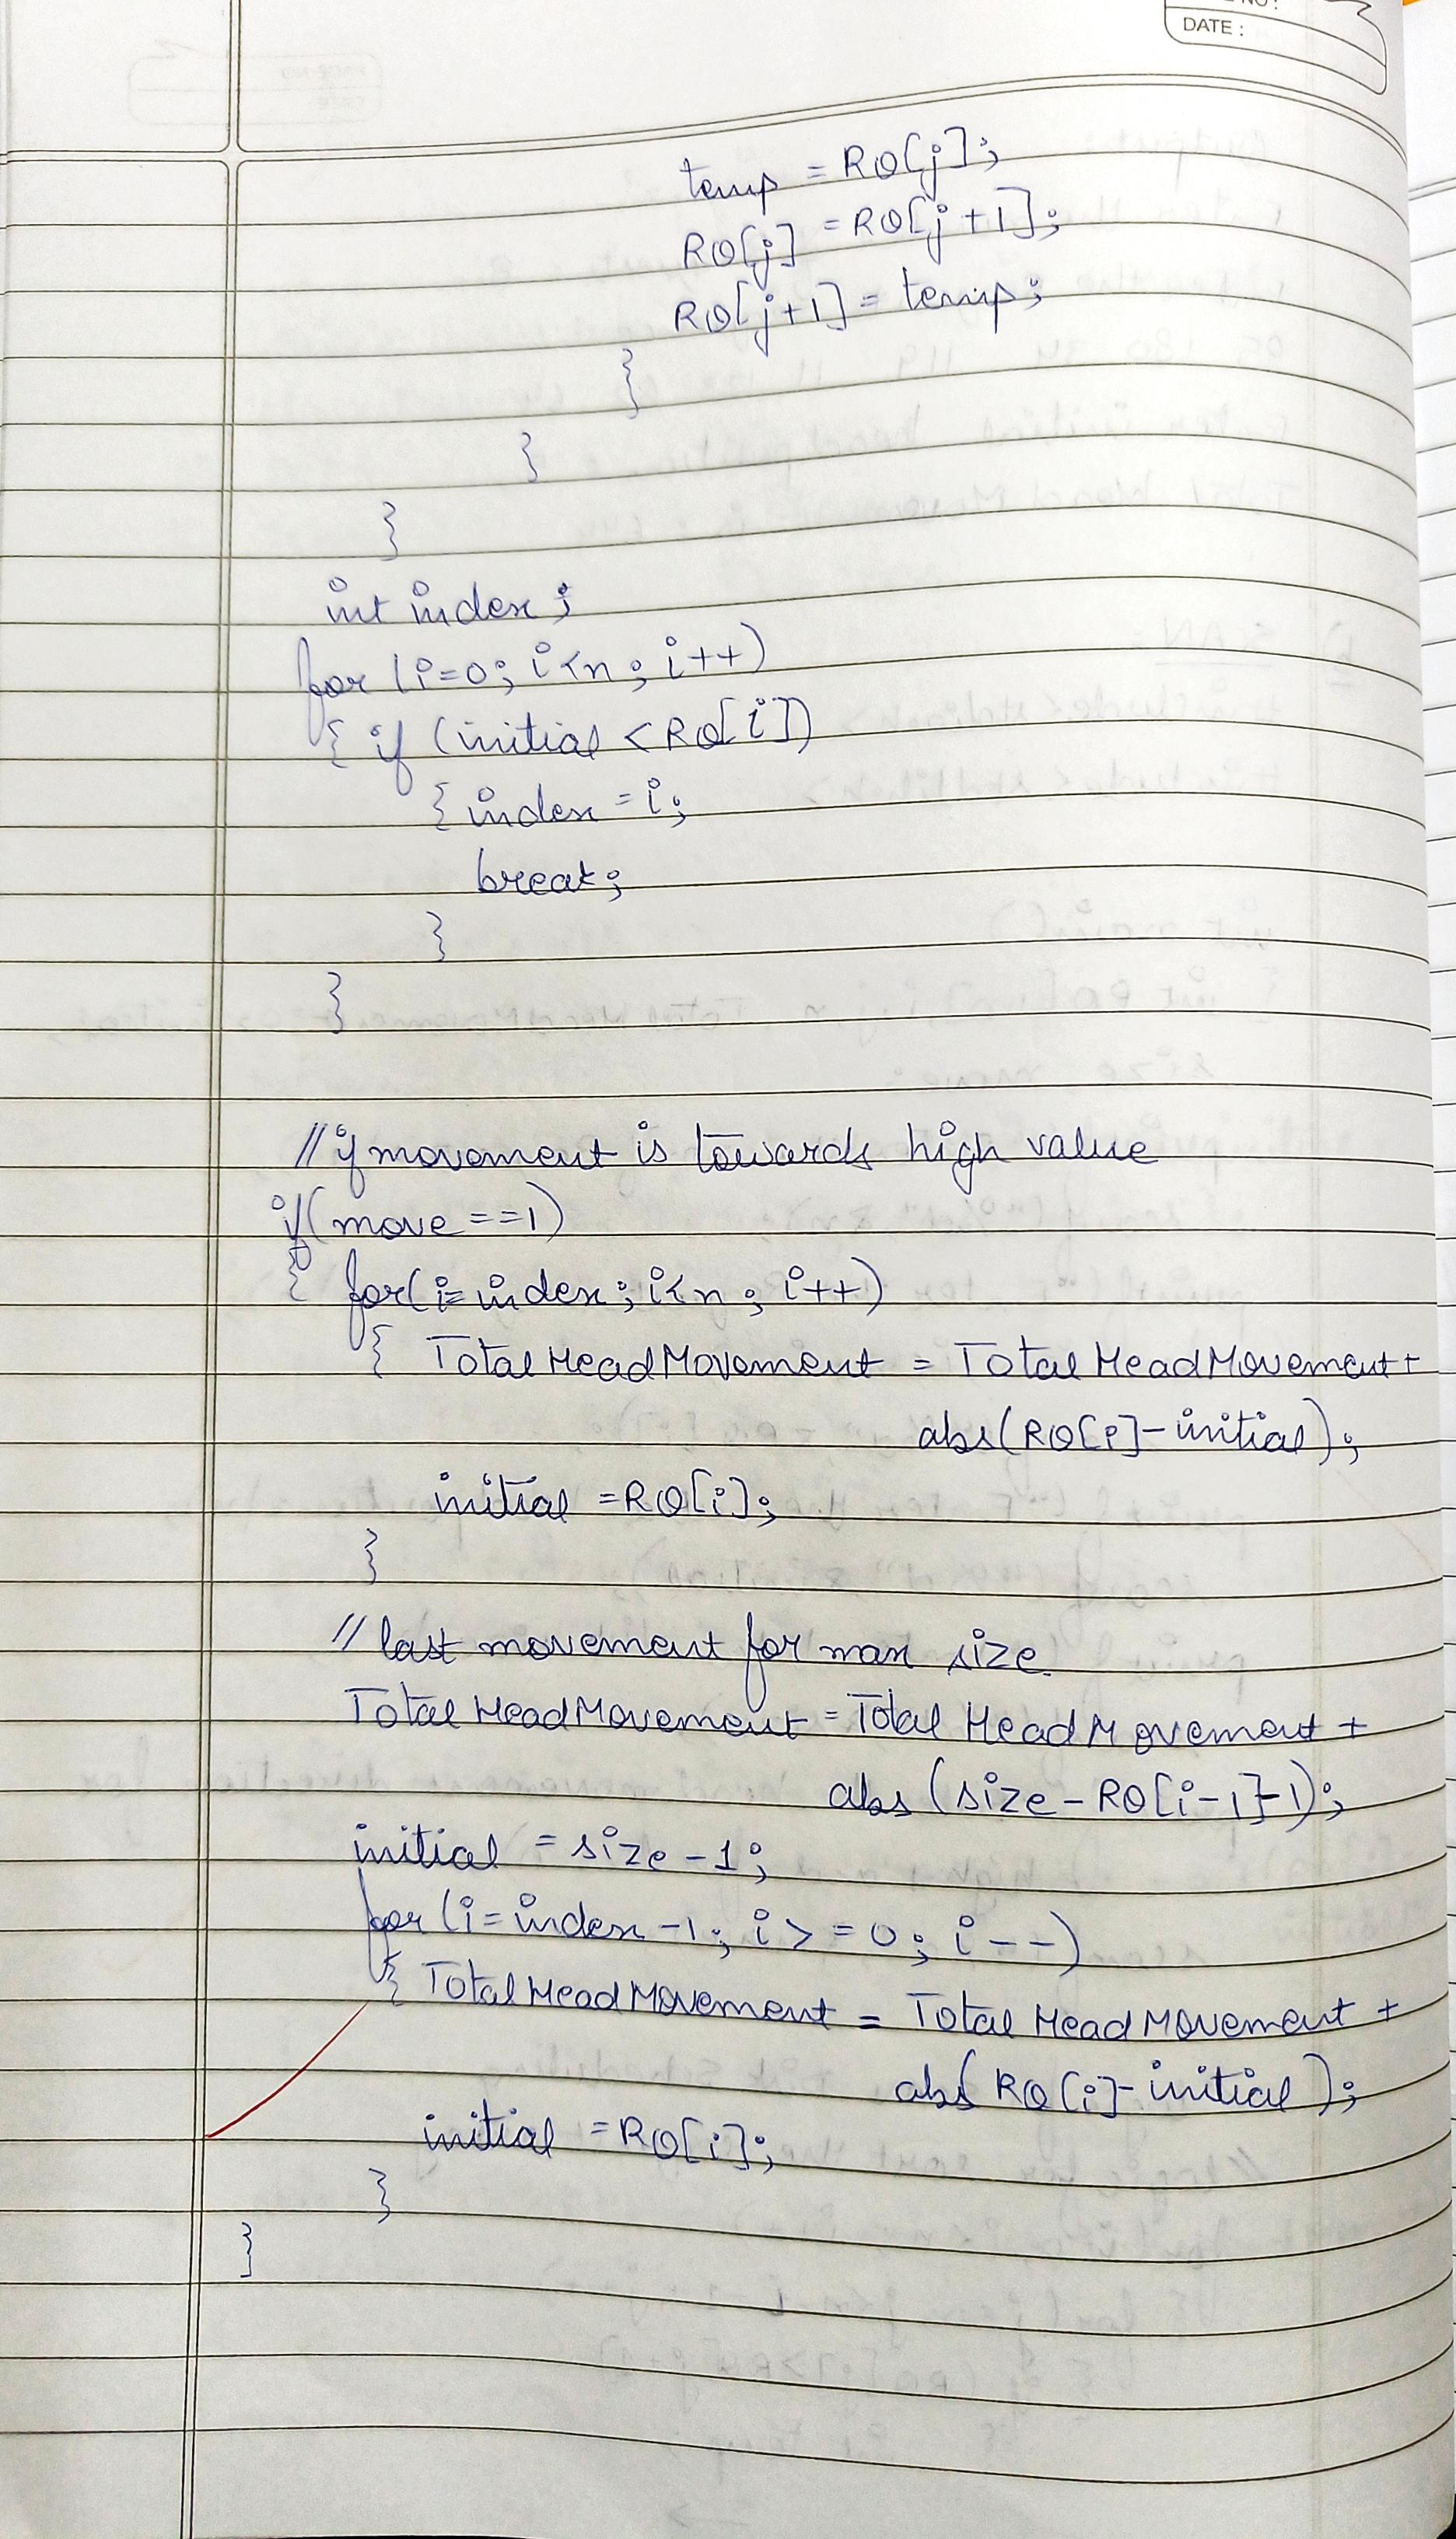 DATE :
temp = RQ[j];
RQ[j] = RQ[j+1];
RQ[j+1] = temp;
}
}
}
int index;
for (i=0; i<n; i++)
{ if (initial < RQ[i])
{ index = i;
break;
}
}
// if movement is towards high value
if(move==1)
{ for(i=index; i<n; i++)
{ TotalHeadMovement = TotalHeadMovement+
abs(RQ[i]-initial);
initial = RQ[i];
}
// last movement for max size
TotalHeadMovement = TotalHeadMovement +
abs (size - RQ[i-1]-1);
initial = size-1;
for (i=index-1; i>=0; i--)
{ TotalHeadMovement = TotalHeadMovement +
abs( RQ[i]-initial );
initial = RQ[i];
}
}